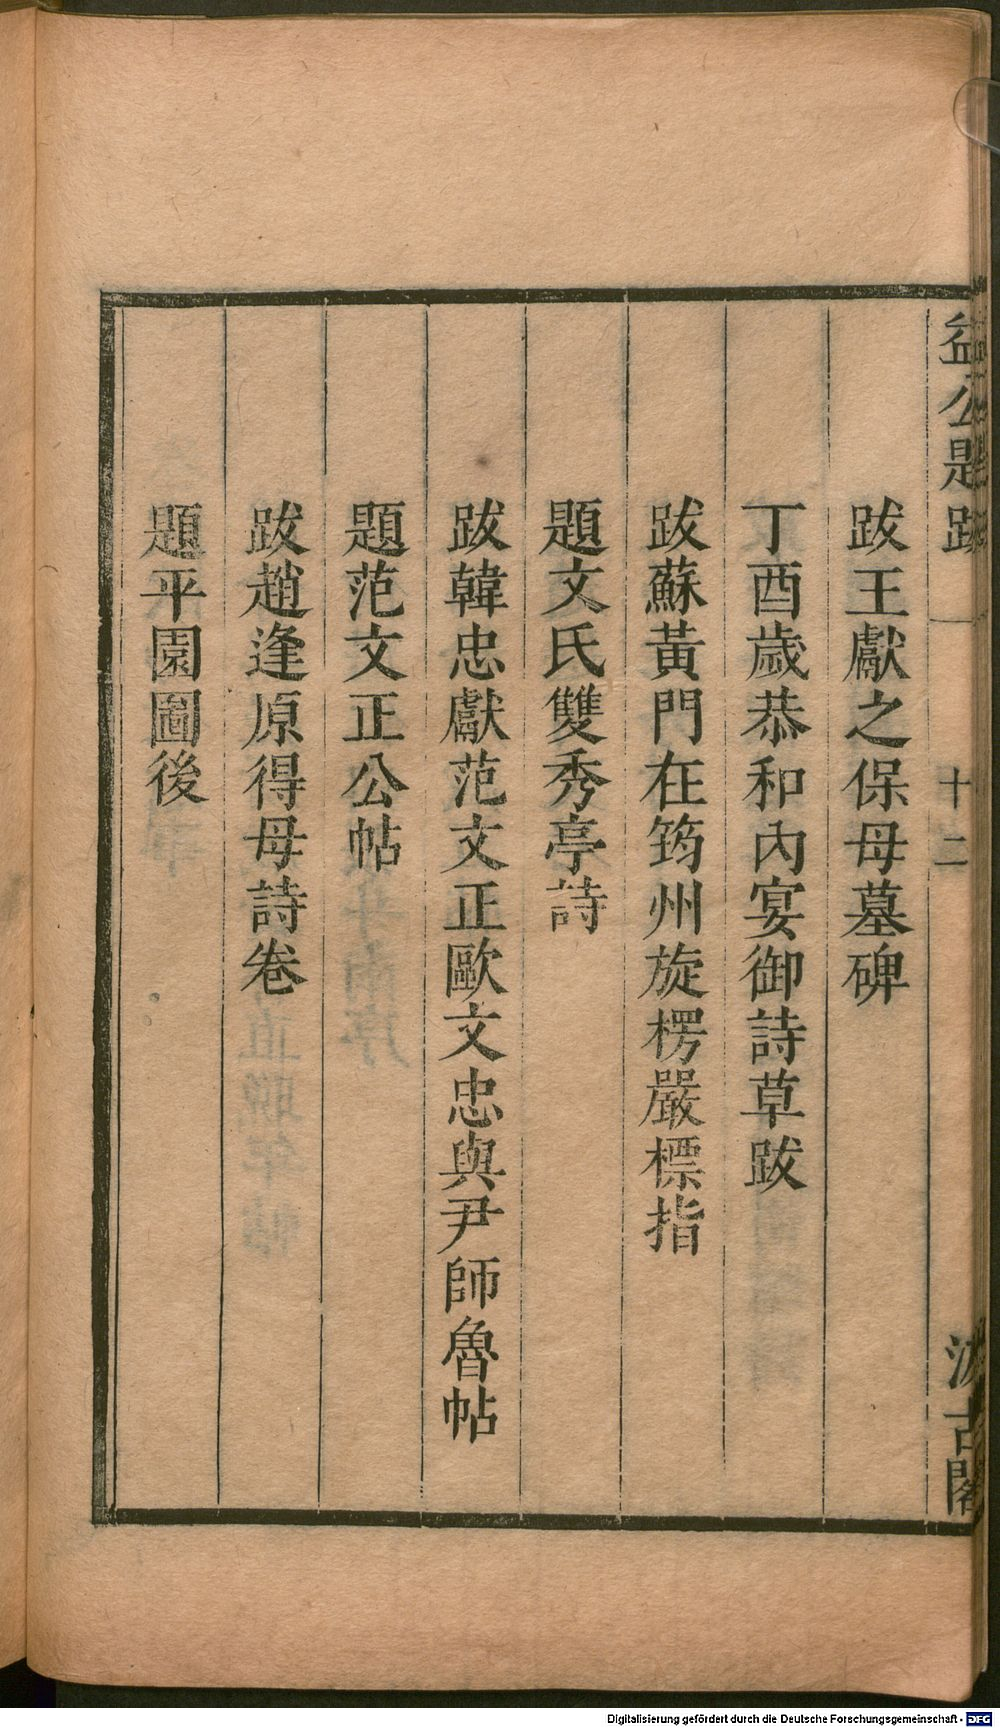 益公題跋 十二 汲古閣
跋王獻之保母墓碑
丁酉歲恭和內宴御詩草跋
跋蘇黃門在筠州旋楞嚴標指
題文氏雙秀亭詩
跋韓忠獻范文正歐文忠與尹師魯帖
題范文正公帖
跋趙逢原得母詩卷
題平園圖後
Digitalisierung gefördert durch die Deutsche Forschungsgemeinschaft - DFG